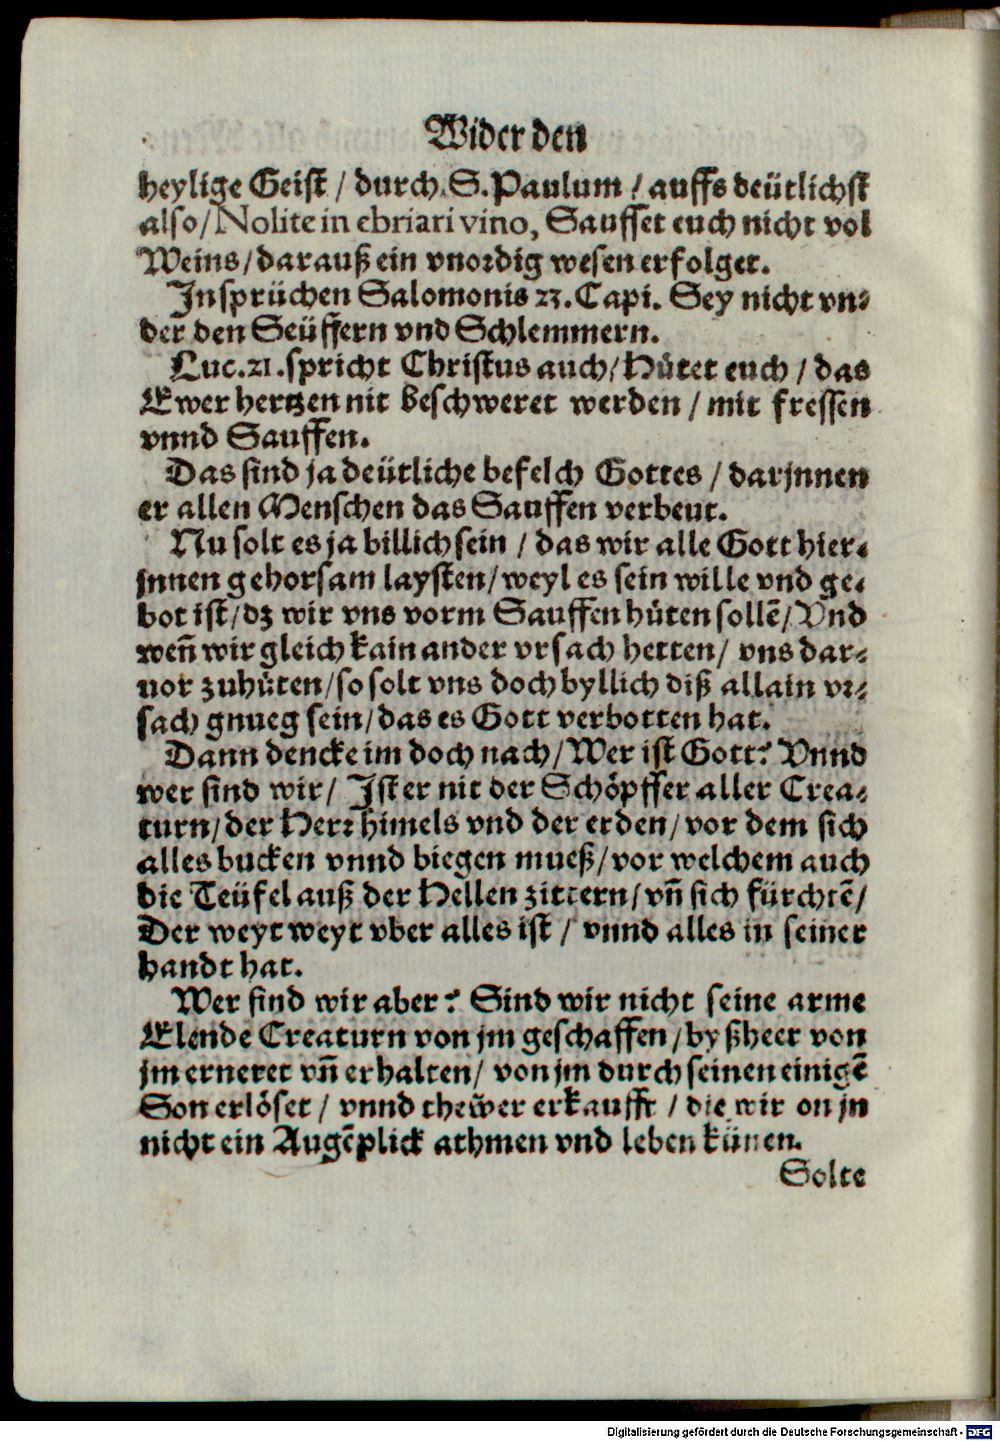 Wider den
heylige Geist / durch S. Paulum / auffs deütlichst
also / Nolite in ebriari vino, Sauffet euch nicht vol
Weins / darauß ein vnordig wesen erfolget.
In sprüchen Salomonis 23. Capi. Sey nicht vn⸗
der den Seüffern vnd Schlemmern.
Luc. 21. spricht Christus auch / Hütet euch / das
Ewer hertzen nit beschweret werden / mit fressen
vnnd Sauffen.
Das sind ja deütliche befelch Gottes / darjnnen
er allen Menschen das Sauffen verbeut.
Nu solt es ja billich sein / das wir alle Gott hier⸗
jnnen gehorsam laysten / weyl es sein wille vnd ge⸗
bot ist / dz wir vns vorm Sauffen hůten sollē / Vnd
weñ wir gleich kain ander vrsach hetten / vns dar⸗
uor zuhůten / so solt vns doch byllich diß allain vr⸗
sach gnueg sein / das es Gott verbotten hat.
Dann dencke im doch nach / Wer ist Gott? Vnnd
wer sind wir / Ist er nit der Schöpffer aller Crea⸗
turn / der Herr himels vnd der erden / vor dem sich
alles bucken vnnd biegen mueß / vor welchem auch
die Teüfel auß der Hellen zittern / vñ sich fürchtē /
Der weyt weyt vber alles ist / vnnd alles in seiner
handt hat.
Wer sind wir aber? Sind wir nicht seine arme
Elende Creaturn von jm geschaffen / byßheer von
jm erneret vñ erhalten / von jm durch seinen einigē
Son erlöset / vnnd thewer erkaufft / die wir on jn
nicht ein Augēplick athmen vnd leben künen.
Solte
Digitalisierung gefördert durch die Deutsche Forschungsgemeinschaft - DFG